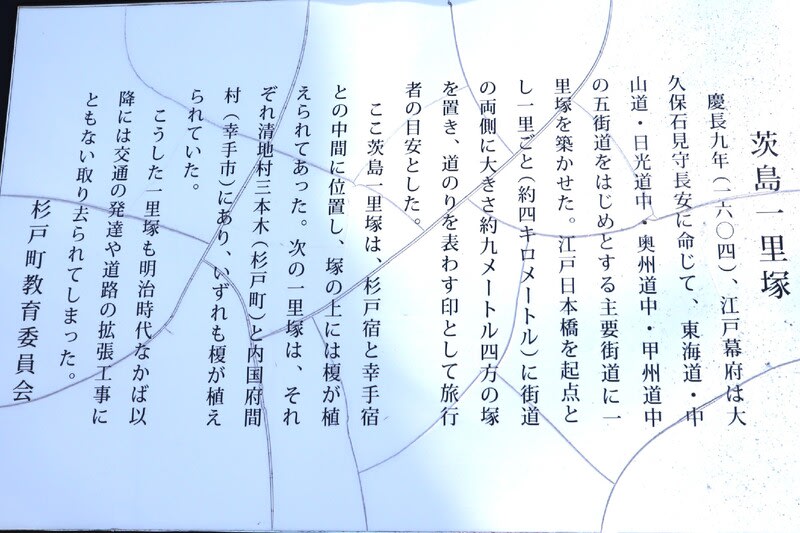 茨島一里塚
慶長九年（一六〇四）、江戸幕府は大
久保石見守長安に命じて、東海道・中
山道・日光道中・奥州道中・甲州道中
の五街道をはじめとする主要街道に一
里塚を築かせた。江戸日本橋を起点と
し一里ごと（約四キロメートル）に街道
の両側に大きさ約九メートル四方の塚
を置き、道のりを表わす印として旅行
者の目安とした。
ここ茨島一里塚は、杉戸宿と幸手宿
との中間に位置し、塚の上には榎が植
えられてあった。次の一里塚は、それ
ぞれ清地村三本木（杉戸町）と内国府間
村（幸手市）にあり、いずれも榎が植え
られていた。
こうした一里塚も明治時代なかば以
降には交通の発達や道路の拡張工事に
ともない取り去られてしまった。
杉戸町教育委員会